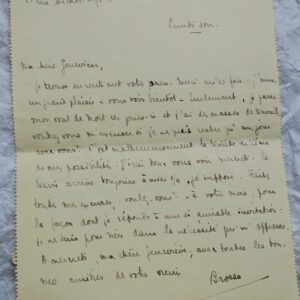 Lundi soir
Ma chère Geneviève,
Je trouve en rentrant votre pneu. Merci mille fois : j'aurai
un grand plaisir à vous voir bientôt. Seulement, je passe
mon oral de                      et j'ai des masses de travail
voudrez vous m'excuser si je ne puis rester qu'un jour
avec vous ? C'est malheureusement la limite extrême
de mes possibilités. J'irai donc vous voir mercredi. Le
train arrive toujours à midi      , je suppose. Faites
toutes mes excuses, voulez-vous ? à votre mère, pour
la façon dont je réponds à une si aimable invitation :
je ne suis pour rien dans la nécessité qui m'oppresse.
A mercredi ma chère Geneviève, avec toutes les bon-
nes amitiés de votre